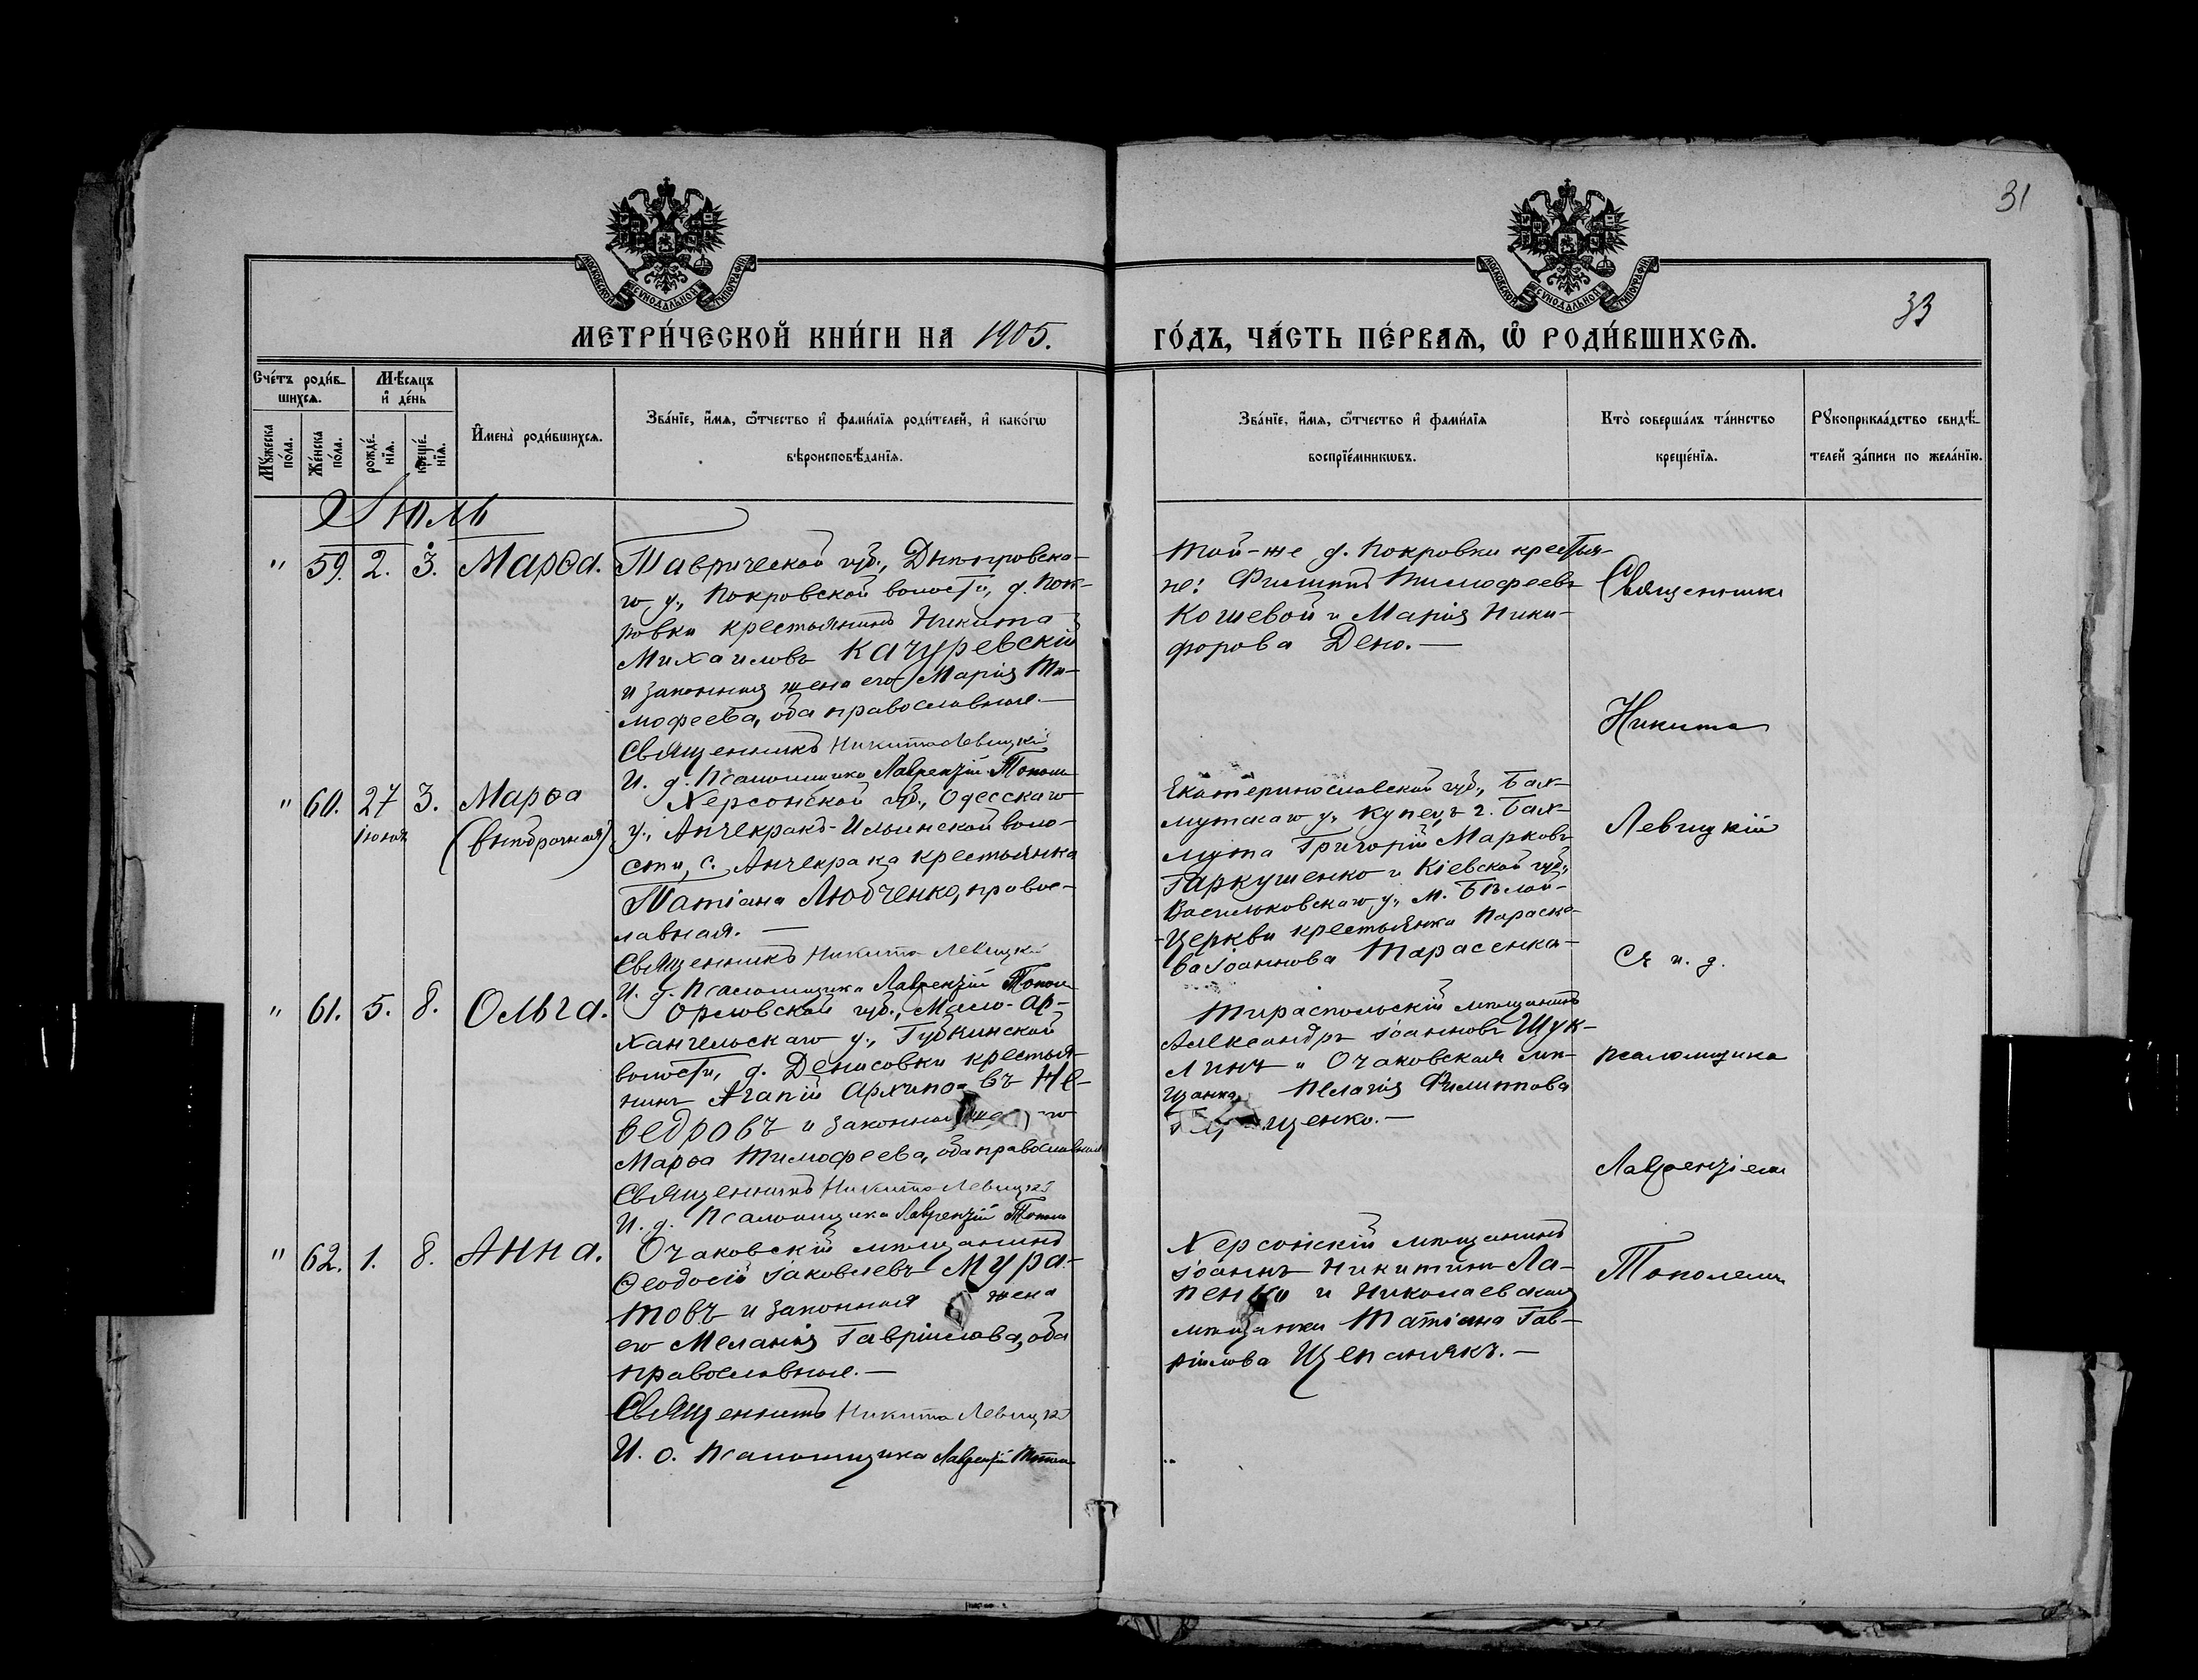 31
МОСКОВСКОЙ СѴНОДАЛЬНОЙ ТИПОГРАФІИ
МОСКОВСКОЙ СѴНОДАЛЬНОЙ ТИПОГРАФІИ
33
МЕТРИ́ЧЕСКОЙ КНИ́ГИ НА 1905. ГО́ДЪ, ЧА́СТЬ ПЕ́РВАѦ, Ѽ РОДИ́ВШИХСѦ.
Сче́тъ роди́в-
шихсѧ.
Мꙋ́жеска по́ла.
Же́нска по́ла.
Мѣ́сяцъ и҆ де́нь
рожде́-нїѧ.
креще́-нїѧ.
И҆мена̀ роди́вшихсѧ.
Зва́нїе, и҆́мѧ, ѻ҆́тчество и҆ фами́лїѧ роди́телей, и҆ како́гѡ
вѣроисповѣ́данїѧ.
Зва́нїе, и҆́мѧ, ѻ҆́тчество и҆ фами́лїѧ
воспрїе́мникѡвъ.
Кто̀ соверша́лъ та́инство
креще́нїѧ.
Рꙋкоприкла́дство свидѣ́-
телей за́писи по жела́нїю.
Іюль
" 59. 2. 3. Марѳа.
Таврической губ., Днѣпровска-
го у., Покровской волости, д. Пок-
ровки крестьянинъ Никита
Михаиловъ Качуревскій
и законная жена его Марія Ти-
мофеева, оба православные. —
Священникъ Никита Левицкій
И. д. Псаломщика Лаврентій Тополь
Той-же д. Покровки крестья-
не: Филиппъ Тимофеевъ
Кошевой и Марія Ники-
форова Дено. —
" 60. 27 3. Марѳа
Іюня (внѣбрачная)
Херсонской губ., Одесскаго
у., Анчекракъ-Ильинской воло-
сти, с. Анчекрака крестьянка
Татіана Любченко, правос-
лавная. —
Священникъ Никита Левицкій
И. д. Псаломщика Лаврентій Тополь
Екатеринославской губ., Бах-
мутскаго у. купецъ г. Бах-
мута Григорій Марковъ
Гаркушенко и Кіевской губ.,
Васильковскаго у., м. Бѣлой-
Церкви крестьянка Параске-
ва Іоаннова Тарасенко —
" 61. 5. 8. Ольга.
Орловской губ., Мало-Ар-
хангельскаго у., Губкинской
волости, д. Денисовки крестья-
нинъ Агапій Архиповъ Не-
ведровъ и законная
Марѳа Тимофеева, оба православные
Священникъ Никита Левицкій
И. д. Псаломщика Лаврентій Тополь
Тираспольскій мѣщанинъ
Александръ Іоанновъ Щук-
линъ и Очаковская мѣ-
щанка Пелагія Филиппова
щенко. —
" 62. 1. 8. Анна.
Очаковскій мѣщанинъ
Ѳеодосій Іаковлевъ Мура-
товъ и законная жена
его Меланія Гавріилова, оба
православные. —
Священникъ Никита Левицкій
И. о. Псаломщика Лаврентій Тополь
Херсонскій мѣщанинъ
Іоаннъ Никитинъ Ла-
пенко и Николаевская
мѣщанка Татіана Гав-
ріилова Щепанякъ. —
Священникъ
Никита
Левицкій
Съ и. д.
псаломщика
Лаврентіемъ
Тополемъ